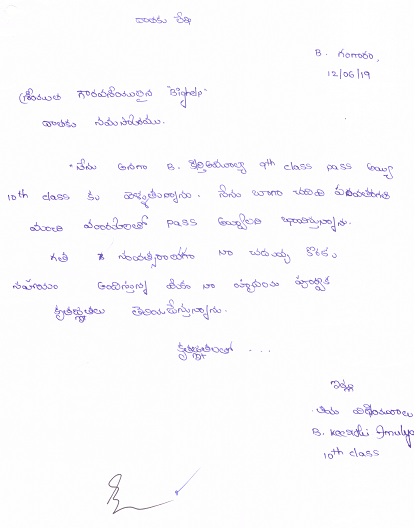 దాతకు లేఖ
B. గంగారం,
12/06/19
శ్రీయుత గౌరవనీయులైన "Bighelp"
దాతకు నమస్కారములు.
నేను అనగా B. కీర్తిఅమూల్య 9th class pass అయ్యి
10th class కు వెళ్ళుతున్నాను. నేను బాగా చదివి
మంచి మార్కులతో pass అవ్వాలని భావిస్తున్నాను.
గత సంవత్సరాలుగా నా చదువుకు కొరకు
సహాయం అందిస్తున్న మీకు నా హృదయ పూర్వక
కృతజ్ఞతలు తెలియచేస్తున్నాను.
కృతజ్ఞతలతో ...
ఇట్లు
తమ విధేయురాలు
B. Keerthi Amulya
10th class